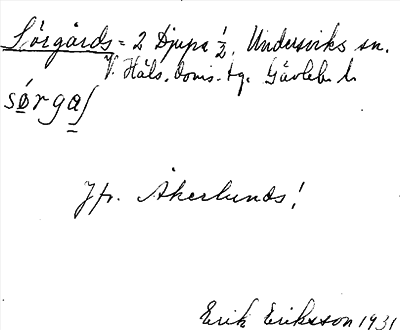 Sörgårds = 2 Djupa 1/2, Undersviks sn.
V. Häls. doms. tg. Gävleb. l.
sørgas
Jfr. Åkerlunds!
Erik Eriksson 1931